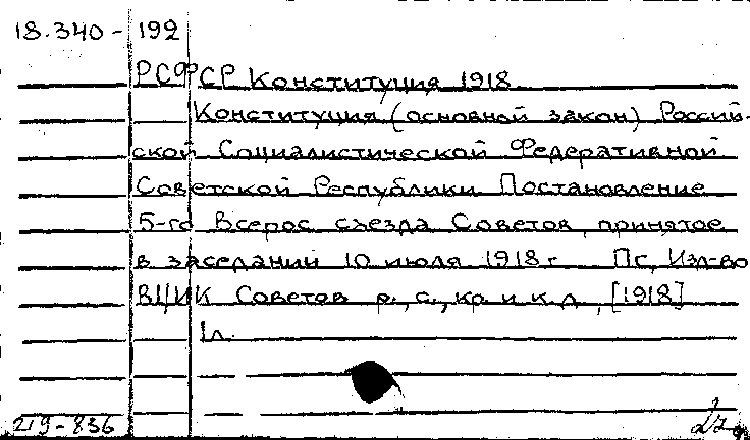 18.340- 192
РСФСР Конституция 1918
Конституция (основной закон) Россий-
ской Социалистической Федеративной
Советской Республики Постановление
5-го Всерос. съезда Советов, принятое
в заседании 10 июля 1918 г. Пг., Изд-во
ВЦИК Советов р., с., кр. и к. д., [1918]
1 л.
219-836